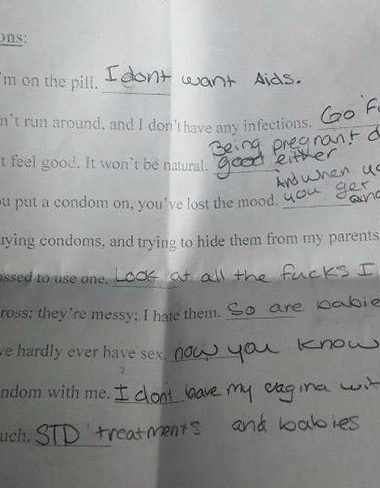 ons:
I'm on the pill. I dont want Aids.
n't run around, and I don't have any infections. Go
Being pregnant
t feel good. It won't be natural. good either
And when
ou put a condom on, you've lost the mood. you get
uying condoms, and trying to hide them from my parents
assed to use one. Look at all the fucks I
ross; they're messy; I hate them. So are babie
ve hardly ever have sex. now you know
ndom with me. I dont leave my vagina wit
uch. STD treatments and babies